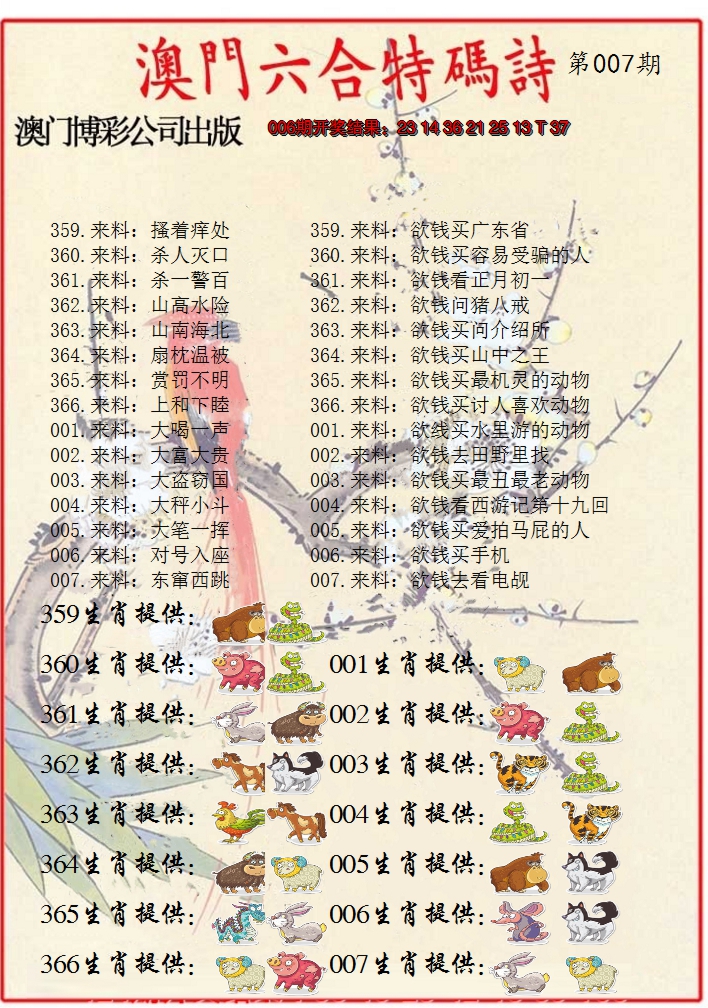 澳門六合特碼詩 第007期
澳门博彩公司出版 006期开奖结果：23 14 36 21 25 13 T 37
359.来料：搔着痒处 359.来料：欲钱买广东省
360.来料：杀人灭口 360.来料：欲钱买容易受骗的人
361.来料：杀一警百 361.来料：欲钱看正月初一
362.来料：山高水险 362.来料：欲钱问猪八戒
363.来料：山南海北 363.来料：欲钱买问介绍所
364.来料：扇枕温被 364.来料：欲钱买山中之王
365.来料：赏罚不明 365.来料：欲钱买最机灵的动物
366.来料：上和下睦 366.来料：欲钱买讨人喜欢动物
001.来料：大喝一声 001.来料：欲线买水里游的动物
002.来料：大富大贵 002.来料：欲钱去田野里找
003.来料：大盗窃国 003.来料：欲钱买最丑最老动物
004.来料：大秤小斗 004.来料：欲钱看西游记第十九回
005.来料：大笔一挥 005.来料：欲钱买爱拍马屁的人
006.来料：对号入座 006.来料：欲钱买手机
007.来料：东窜西跳 007.来料：欲钱去看电觇
359生肖提供：
360生肖提供： 001生肖提供：
361生肖提供： 002生肖提供：
362生肖提供： 003生肖提供：
363生肖提供： 004生肖提供：
364生肖提供： 005生肖提供：
365生肖提供： 006生肖提供：
366生肖提供： 007生肖提供：